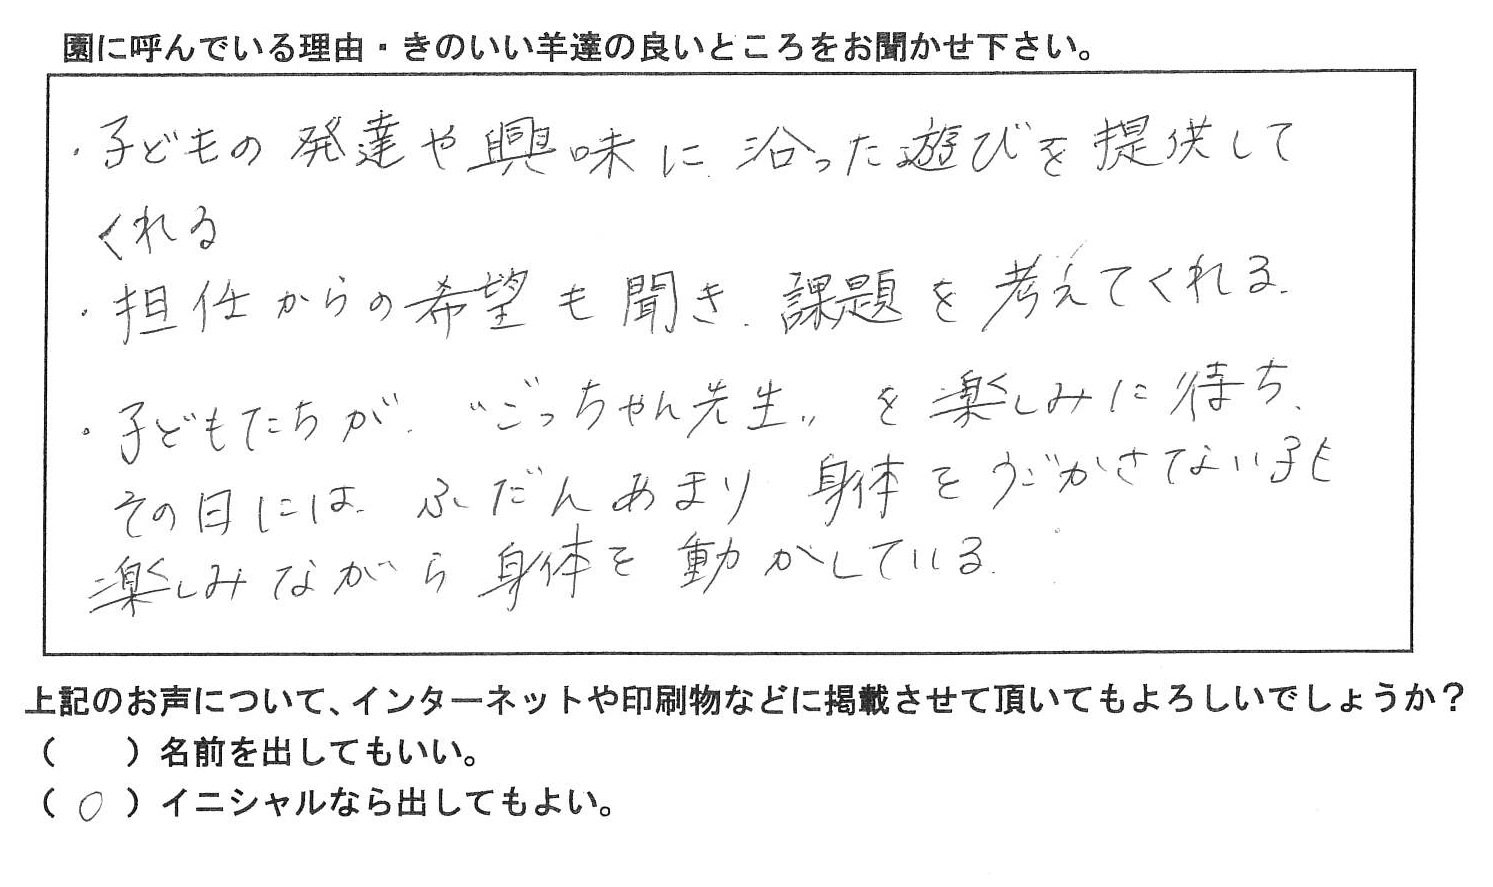 園に呼んでいる理由・きのいい羊達の良いところをお聞かせ下さい。
・子どもの発達や興味に沿った遊びを提供して
くれる
・担任からの希望も聞き、課題を考えてくれる。
・子どもたちが、“ごっちゃん先生”を楽しみに待ち、
その日には、ふだんあまり身体をうごかさない子も
楽しみながら身体を動かしている。
上記のお声について、インターネットや印刷物などに掲載させて頂いてもよろしいでしょうか？
（　）名前を出してもいい。
（○）イニシャルなら出してもよい。